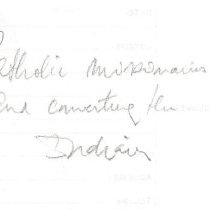 atholic missionaries
and converting the
Indians